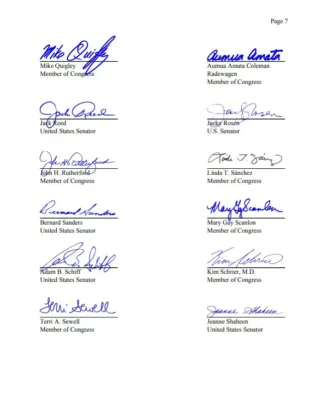 Page 7
Mike Quigley
Mike Quigley
Member of Congress
Aumua Amata
Aumua Amata Coleman
Radewagen
Member of Congress
Jack Reed
Jack Reed
United States Senator
Jacky Rosen
Jacky Rosen
U.S. Senator
John H. Rutherford
John H. Rutherford
Member of Congress
Linda T. Sánchez
Member of Congress
Bernard Sanders
Bernard Sanders
United States Senator
Mary Gay Scanlon
Mary Gay Scanlon
Member of Congress
Adam B. Schiff
United States Senator
Kim Schrier
Kim Schrier, M.D.
Member of Congress
Terri Sewell
Terri A. Sewell
Member of Congress
Jeanne Shaheen
Jeanne Shaheen
United States Senator